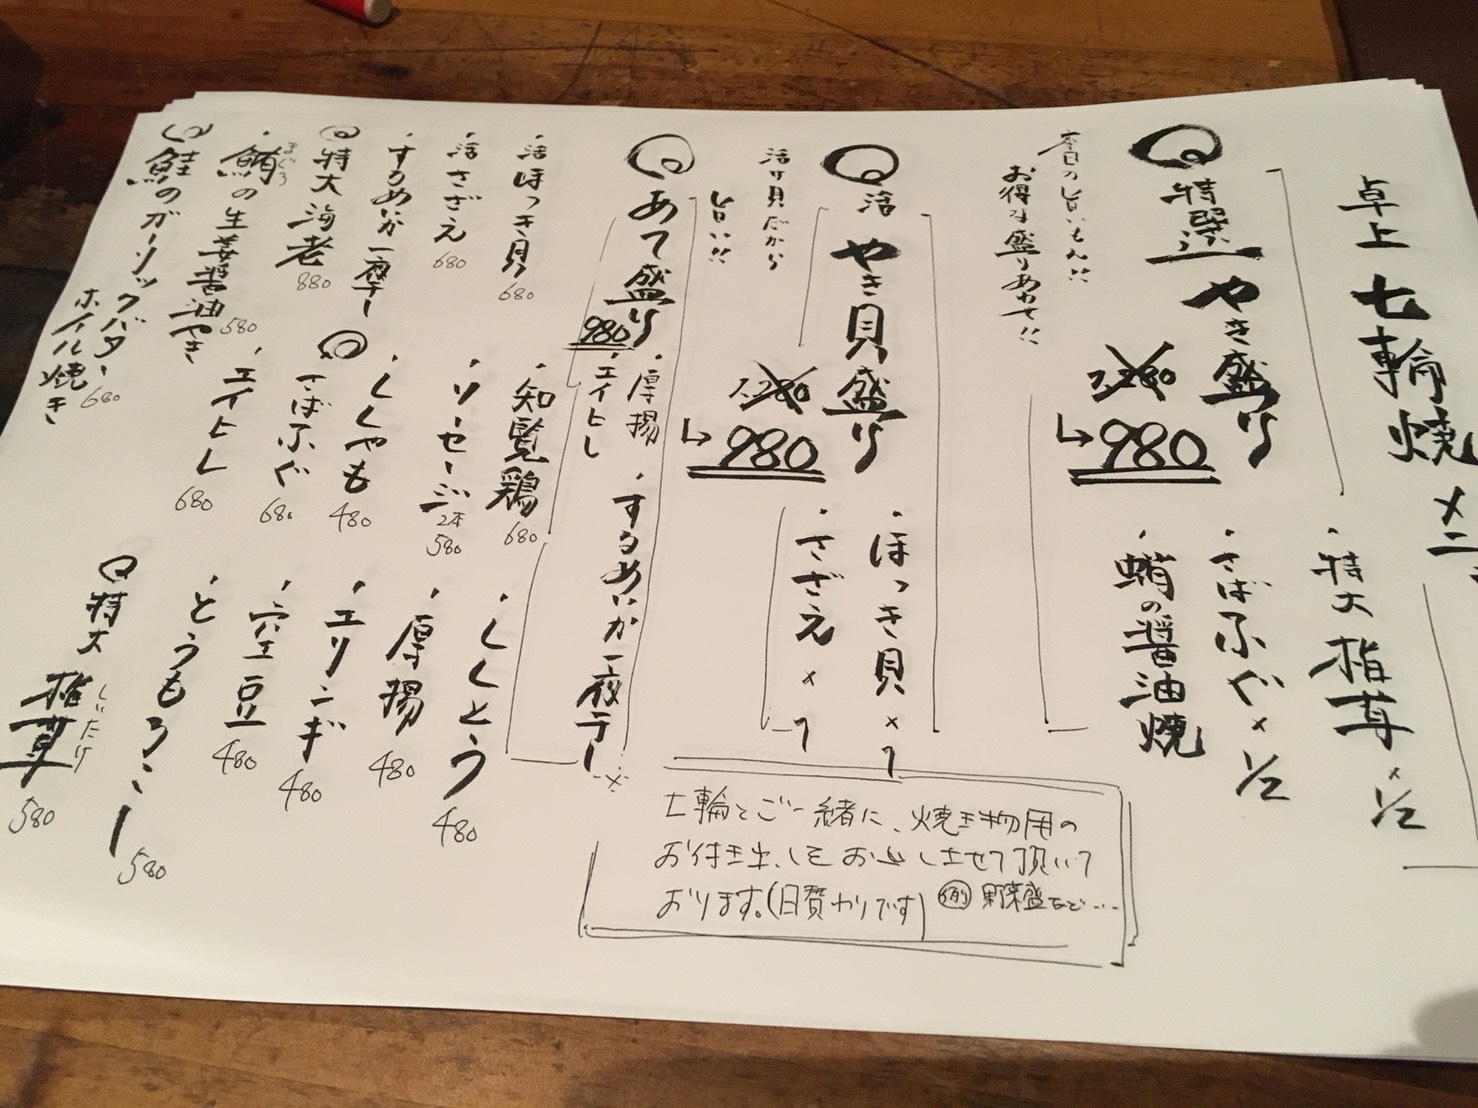 卓上 七輪焼 メニ
特選 やき盛り
1,280
980
今日の旨いもん!!
お得な盛りあわせ!!
・特大椎茸×1/2
・さばふぐ×1/2
・蛸の醤油焼
活 やき貝盛り
1,280
980
活け貝だから
旨い!!
・ほっき貝×1
・さざえ×1
あて盛り
980
厚揚 するめいか一夜干し
エイヒレ
・活ほっき貝 680
・活さざえ 680
・するめいか一夜干し
特大海老 880
・鮪の生姜醤油やき 580
まぐろ
鮭のガーリックバター
ホイル焼き 680
・知覧鶏 680
・ソーセージ 2本 580
・ししゃも 480
さばふぐ 680
・エイヒレ 680
・ししとう 480
・厚揚 480
・エリンギ 480
・空豆 480
・とうもろこし 580
特大 椎茸 580
しいたけ
七輪とご一緒に、焼き物用の
お付き出しをお出しさせて頂いて
おります。(日替わりです) 例 野菜盛など…